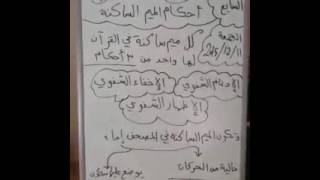 السابع
أحكام الميم الساكنة
الجمعة
كل ميم ساكنة في القرآن
لها واحد من ٣ أحكام
الإدغام الشفوي
الإخفاء الشفوي
الإظهار الشفوي
وتكون الميم الساكنة في المصحف إما
خالية من الحركات
يوضع عليها